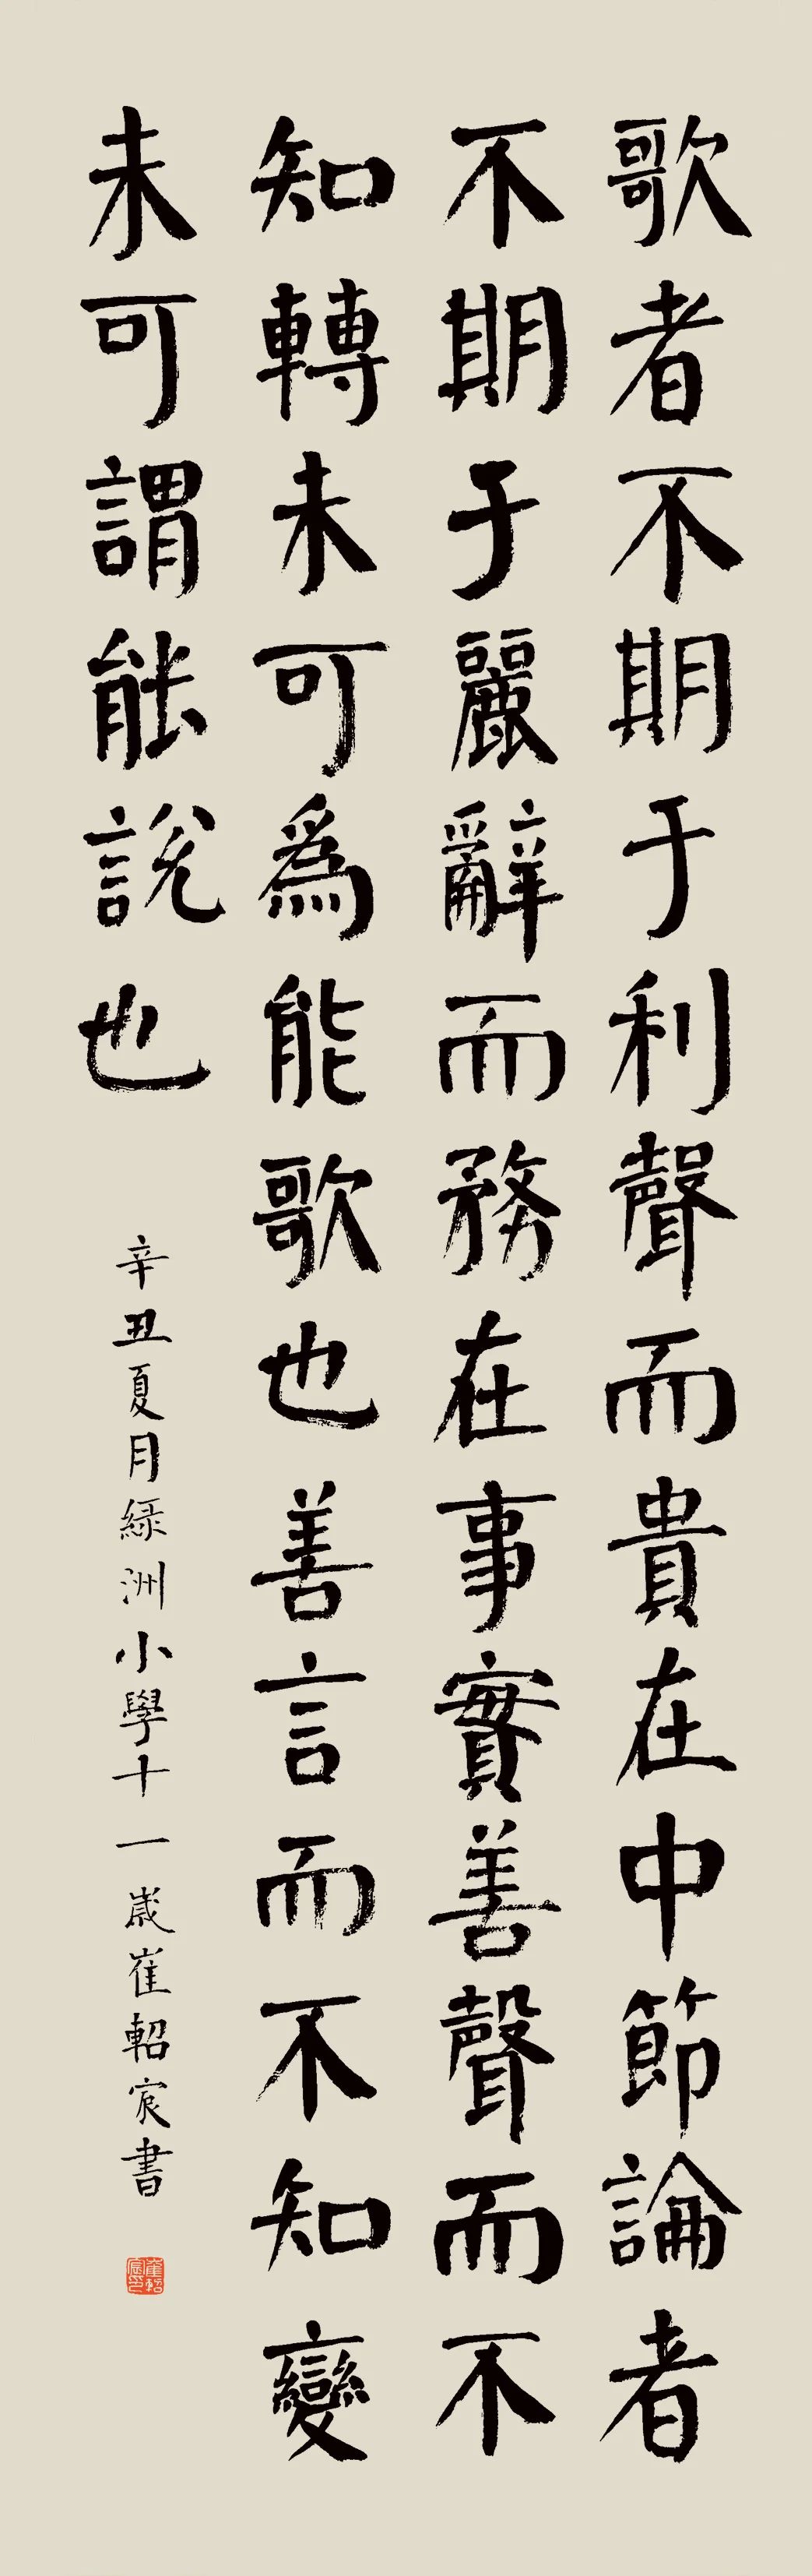 歌者不期于利聲而貴在中節論者
不期于麗辭而務在事實善聲而不
知轉未可為能歌也善言而不知變
未可謂能說也
辛丑夏月綠洲小學十一歲崔軺宸書
崔軺宸印